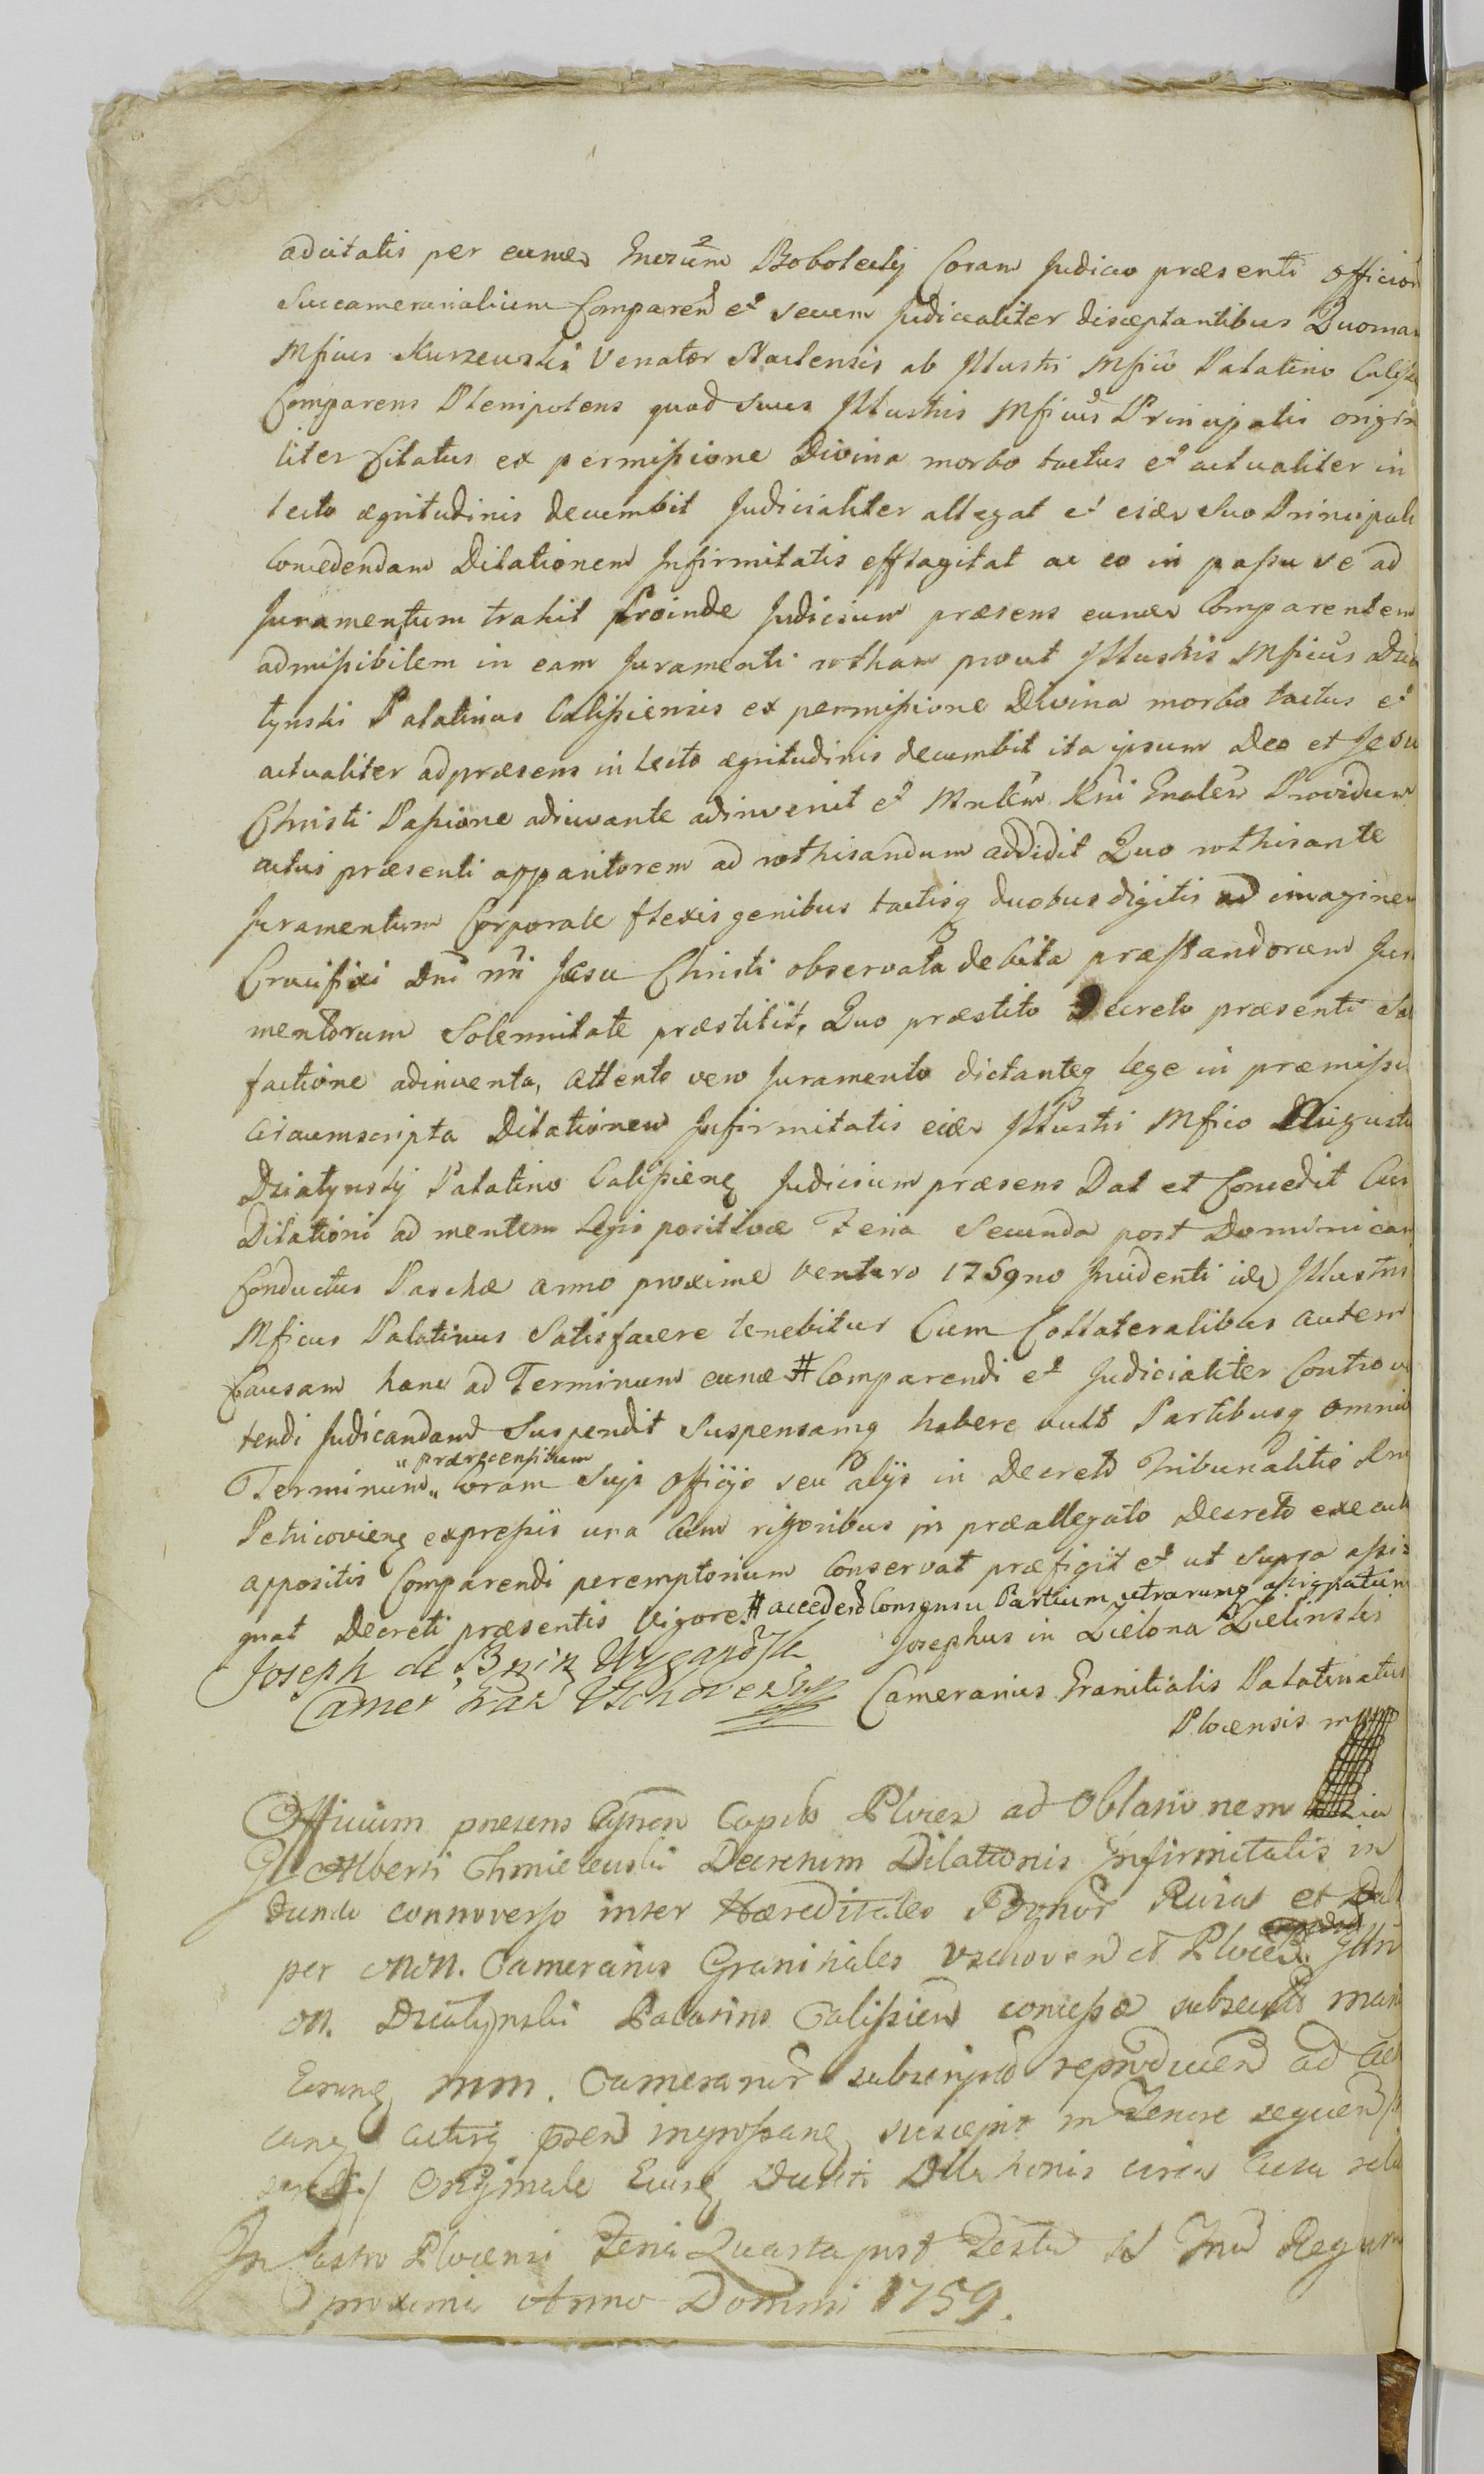 adcitatis per eunđ Gnesum Bobolecky Coram Judicio præsenti officio
Succamerarialium Comparend et secum Judicialiter disceptantibus Quoma
Mficus Kurzewski Venator Naclensis ab Illustri Mfico Palatino Calis
Comparens Plenipotens quod suus Illustris Mficus Principalis origin
liter Citatus ex permissione Divina morbo tactus et actualiter in
lecto ægritudinis decumbit Judicialiter allegat et eiđ Suo Principali
Concedendam Dilationem Infirmitatis efflagitat ac eo in passu se ad
Juramentum trahit proinde Judicium præsens eunđ Comparentem
admissibilem in eam Juramenti rotham prout Illustris Mficus Dzia
tynski Palatinus Calissiensis ex permissione Divina morbo tactus et
actualiter ad præsens in lecto ægritudinis decumbit ita ipsum Deo et Jesu
Christi Passione adiuvante adinvenit et Providum
actus præsenti apparitorem ad rothisandum addidit Quo rothisante
Juramentum Corporale flexis genibus tactisq duobus digitis ad imaginem
Crucifixi Dni nri Jesu Christi observata debita præstandorum Jura
mentorum Solemnitate præstitit, Quo præstito Decreto præsenti Satis
factione adinventa, attento vero Juramento dictanteq lege in præmissis
Circumscripta Dilationem Infirmitatis eiđ Illustri Mfico Augusto
Dziatynsky Palatino Calissienq Judicium præsens Dat et Concedit Cui
Dilationi ad mentem Legis positivæ Feria Secunda post Dominicam
Conductus Paschæ anno proxime venturo 1759no Incidenti iđ Illustris
Mficus Palatinus Satisfacere tenebitur Cum Collateralibus autem
Causam hanc ad Terminum eunđ # Comparendi et Judicialiter Controver
tendi Judicandamq Suspendit Suspensamq habere vult Partibusq omnib
Terminum „ prærecensitum „ Coram Suis Officijs seu alijs in Decreto Tribunalitio Rni
Petricovienq expressis una Cum rigoribus in præallegato Decreto
appositis Comparendi peremptorium Conservat præfigit et ut Supra assi
gnat Decreti præsentis vigore. # acceden Consensu Partium utrarumq assignatum
Joseph de Bnin Josephus in Zielona Zielinski
Camer Gran Vschovensis Camerarius Granitialis Palatinatus
Plocensis mpp
Officium præsens Castren Capit Plocen ad Oblationem
Gl Alberti Chmielewski Decretum Dilationis Infirmitatis in
fundo controverso inter Hæreditates Bonor et
per MM. Camerarios Granitiales Vschoven et Plocen. Illri
M. Dzialynski Palatino Calissien concessæ manu
Eorunq MM. Camerarior subscript reproducen ad Act
eanq Actisq præs ingrossanq suscepit in Tenore sequen
Originale Eiusq Decreti Dilationis circa Acta
In Castro Plocensi Feria Quarta post Festum SS Trium Regum
proxima Anno Domini 1759.